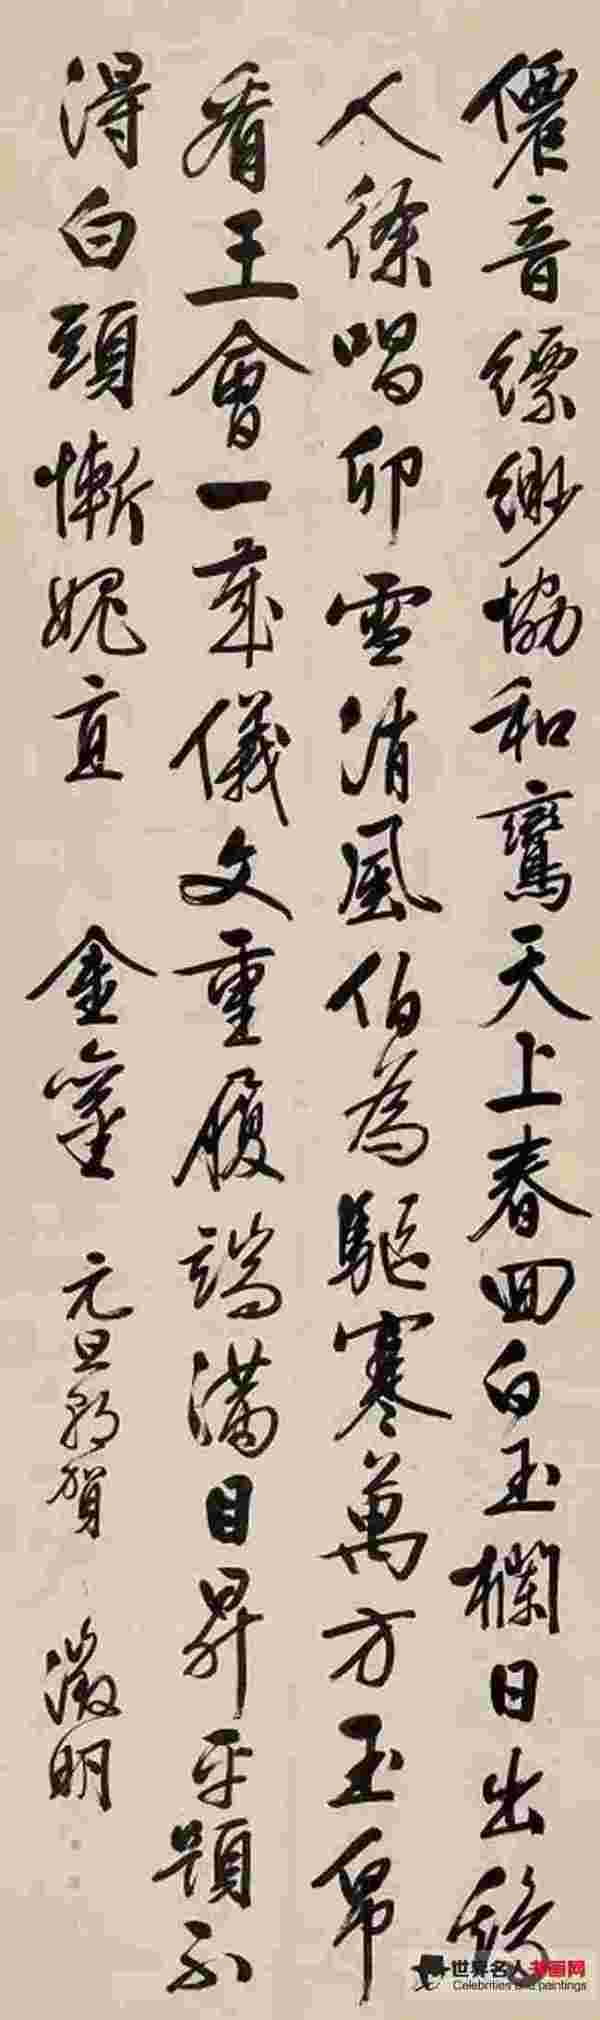 僊音縹緲協和鸞天上春回白玉欄日出
人徐唱卯雪消風伯為驅寒萬方玉帛
看王會一歲儀文重履端滿目昇平題不
得白頭慚媿直金鑾
元旦朝賀
徵明
世界名人书画网
Celebrities and paintings